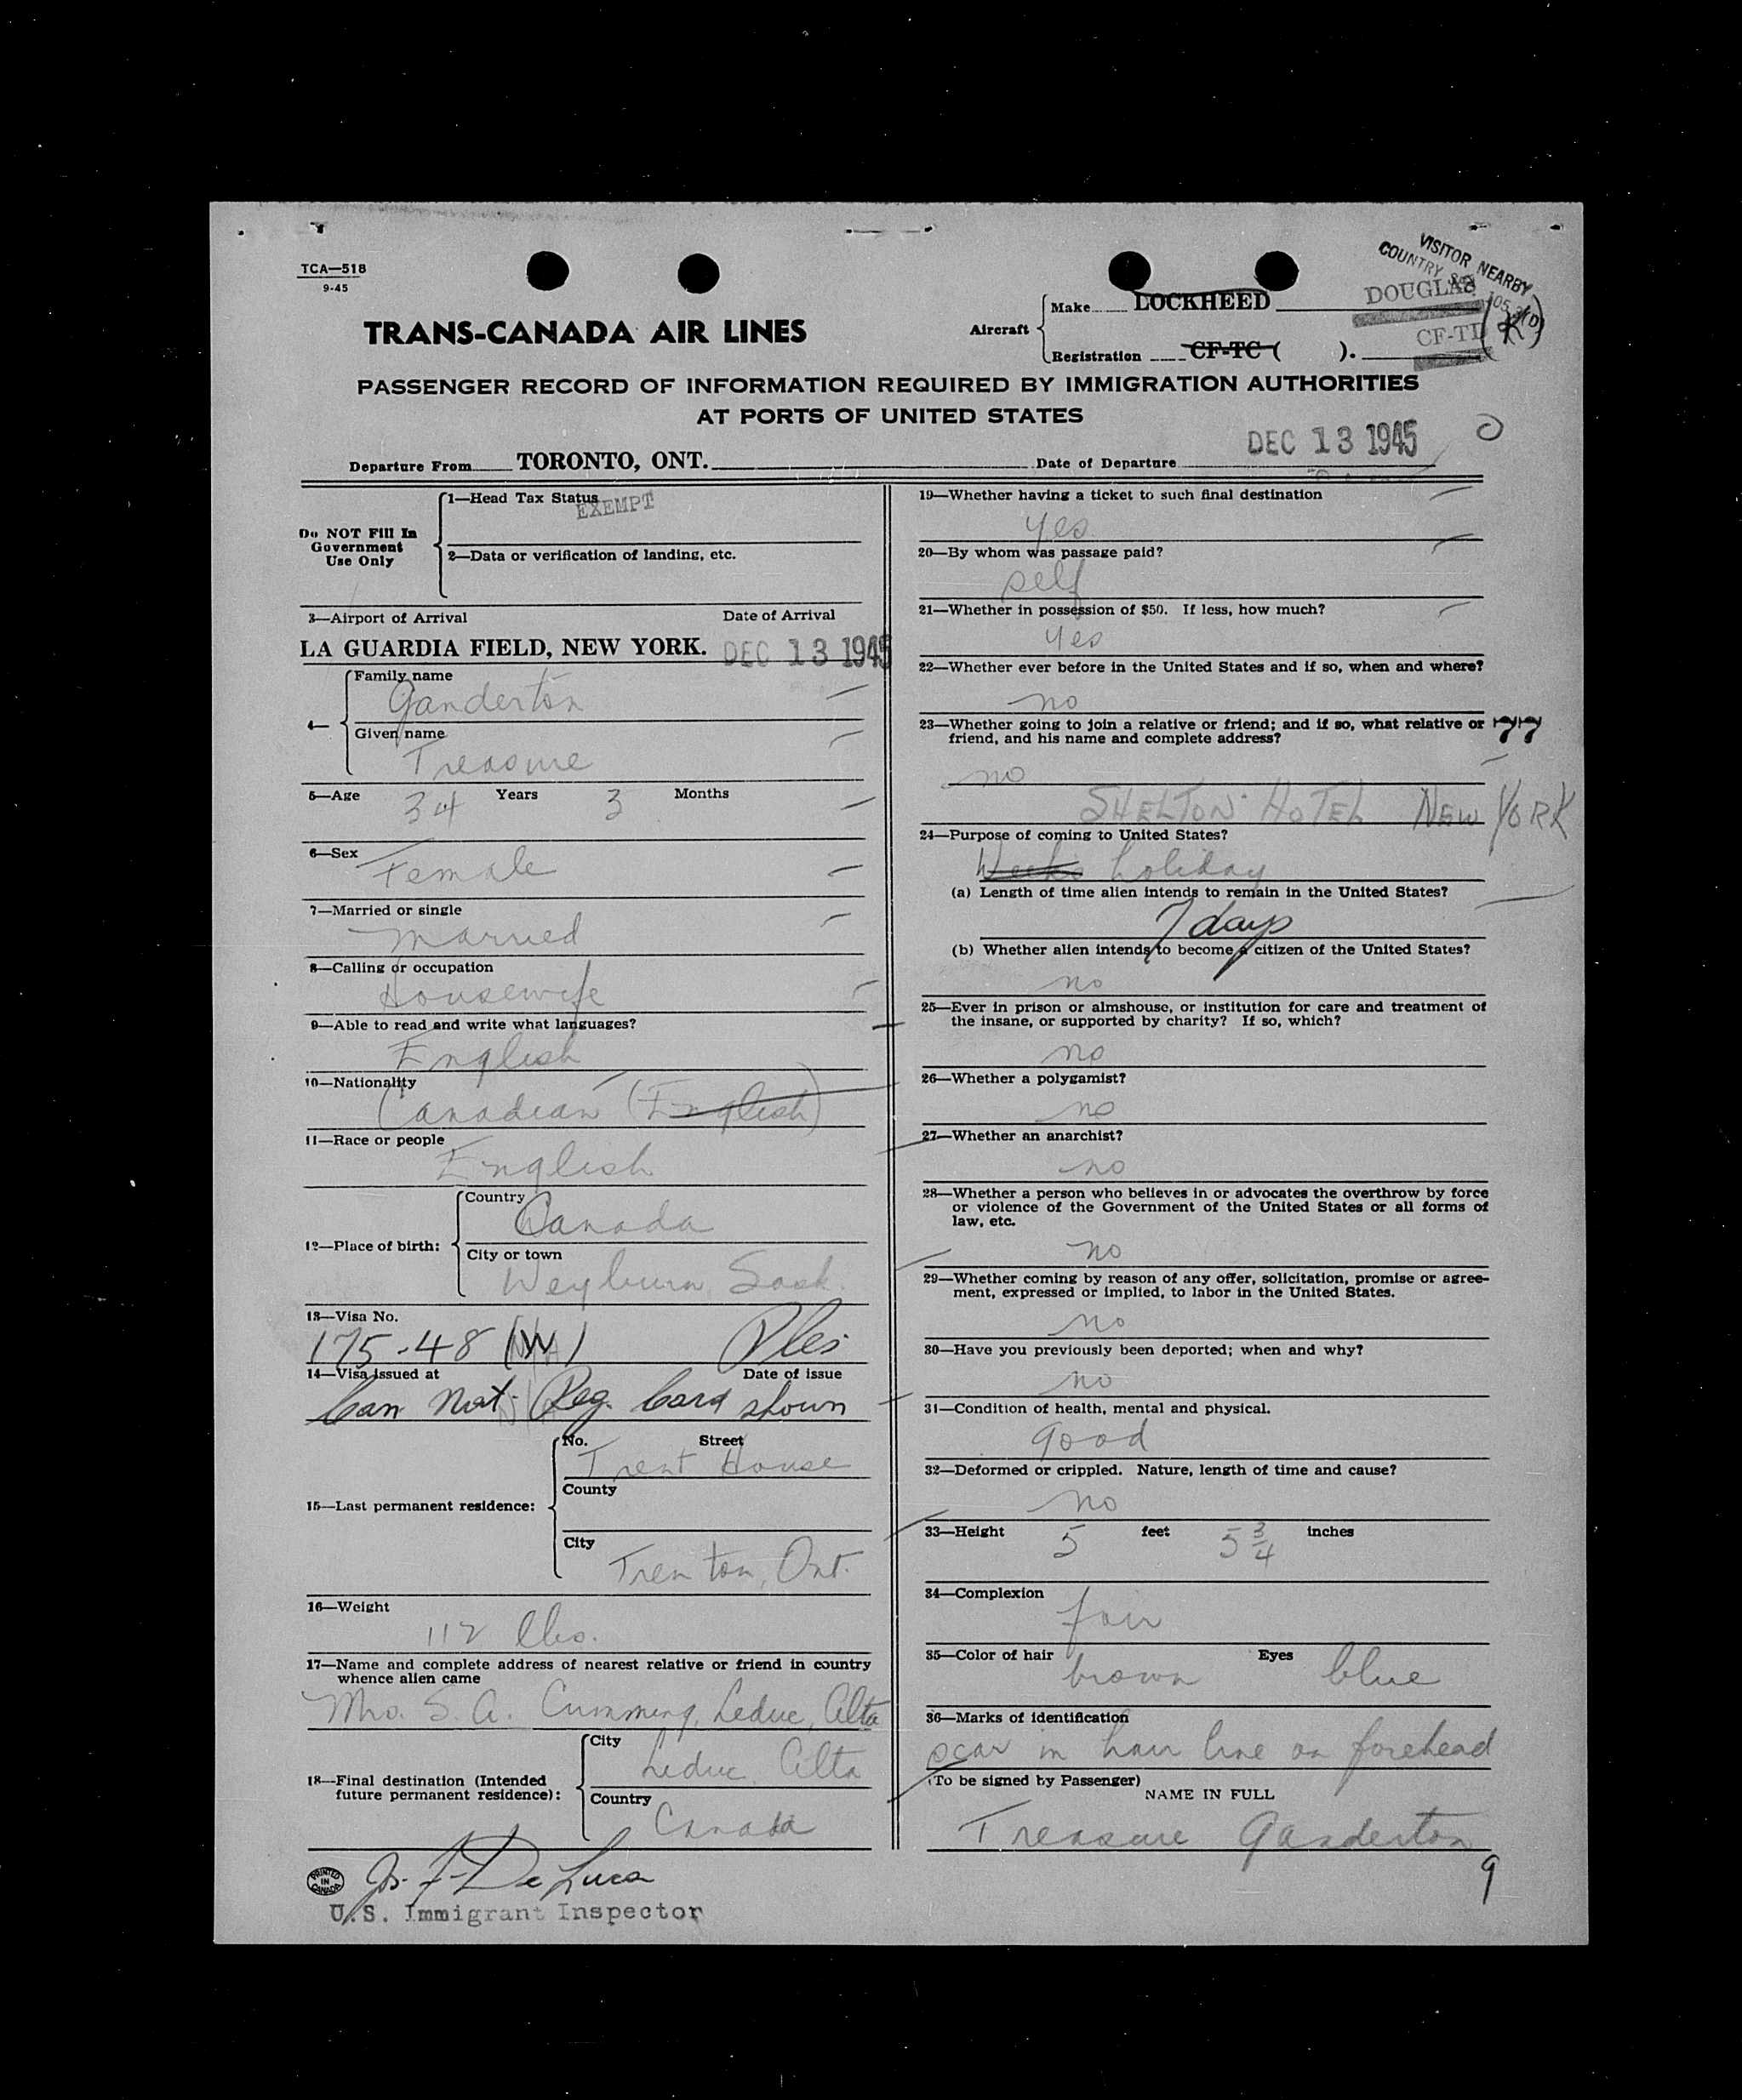 TCA—518
9-45
TRANS-CANADA AIR LINES
Aircraft
Make LOCKHEED
DOUGLAS
Registration CF-TC ( ).
CF-TD (K)
VISITOR NEARBY
COUNTRY
PASSENGER RECORD OF INFORMATION REQUIRED BY IMMIGRATION AUTHORITIES
AT PORTS OF UNITED STATES
Departure From TORONTO, ONT. Date of Departure DEC 13 1945
Do NOT Fill In
Government
Use Only
1—Head Tax Status
EXEMPT
2—Data or verification of landing, etc.
3—Airport of Arrival Date of Arrival
LA GUARDIA FIELD, NEW YORK. DEC 13 1945
4—
Family name
Ganderton
Given name
Treasure
5—Age 34 Years 3 Months
6—Sex
Female
7—Married or single
Married
8—Calling or occupation
Housewife
9—Able to read and write what languages?
English
10—Nationality
Canadian (English)
11—Race or people
English
12—Place of birth:
Country
Canada
City or town
Weyburn, Sask.
13—Visa No.
175-48 (W)
14—Visa issued at Date of issue
Can Nat. Reg. Card shown
15—Last permanent residence:
No. Street
Trent House
County
City
Trenton, Ont.
16—Weight
112 lbs.
17—Name and complete address of nearest relative or friend in country
whence alien came
Mrs. S. A. Cumming, Leduc, Alta
18—Final destination (Intended
future permanent residence):
City
Leduc Alta
Country
Canada
PRINTED
IN
CANADA
Jos. F. De Luca
U.S. Immigrant Inspector
19—Whether having a ticket to such final destination
yes
20—By whom was passage paid?
self
21—Whether in possession of $50. If less, how much?
yes
22—Whether ever before in the United States and if so, when and where?
no
23—Whether going to join a relative or friend; and if so, what relative or
friend, and his name and complete address?
77
no
SHELTON HOTEL NEW YORK
24—Purpose of coming to United States?
Weeks holiday
(a) Length of time alien intends to remain in the United States?
7 days
(b) Whether alien intends to become a citizen of the United States?
no
25—Ever in prison or almshouse, or institution for care and treatment of
the insane, or supported by charity? If so, which?
no
26—Whether a polygamist?
no
27—Whether an anarchist?
no
28—Whether a person who believes in or advocates the overthrow by force
or violence of the Government of the United States or all forms of
law, etc.
no
29—Whether coming by reason of any offer, solicitation, promise or agree-
ment, expressed or implied, to labor in the United States.
no
30—Have you previously been deported; when and why?
no
31—Condition of health, mental and physical.
good
32—Deformed or crippled. Nature, length of time and cause?
no
33—Height 5 feet 5 3/4 inches
34—Complexion
fair
35—Color of hair Eyes
brown blue
36—Marks of identification
scar in hair line on forehead
(To be signed by Passenger)
NAME IN FULL
Treasure Ganderton
9